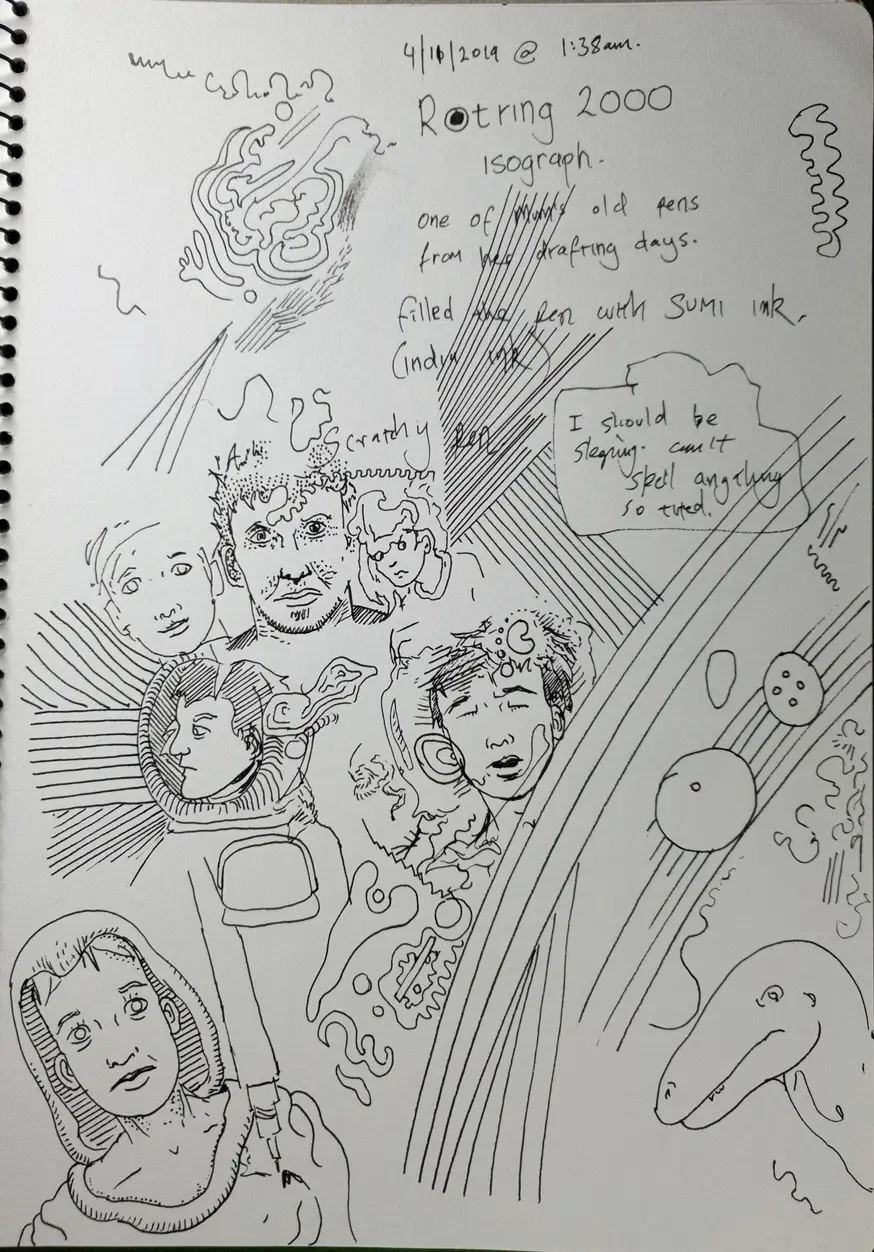 4/10/2019 @ 1:38am.
Rotring 2000
isograph.
one of Mum's old pens
from her drafting days.
filled the pen with SUMI ink.
(india ink)
Scratchy pen
I should be
sleping. can't
spell anything
so tired.